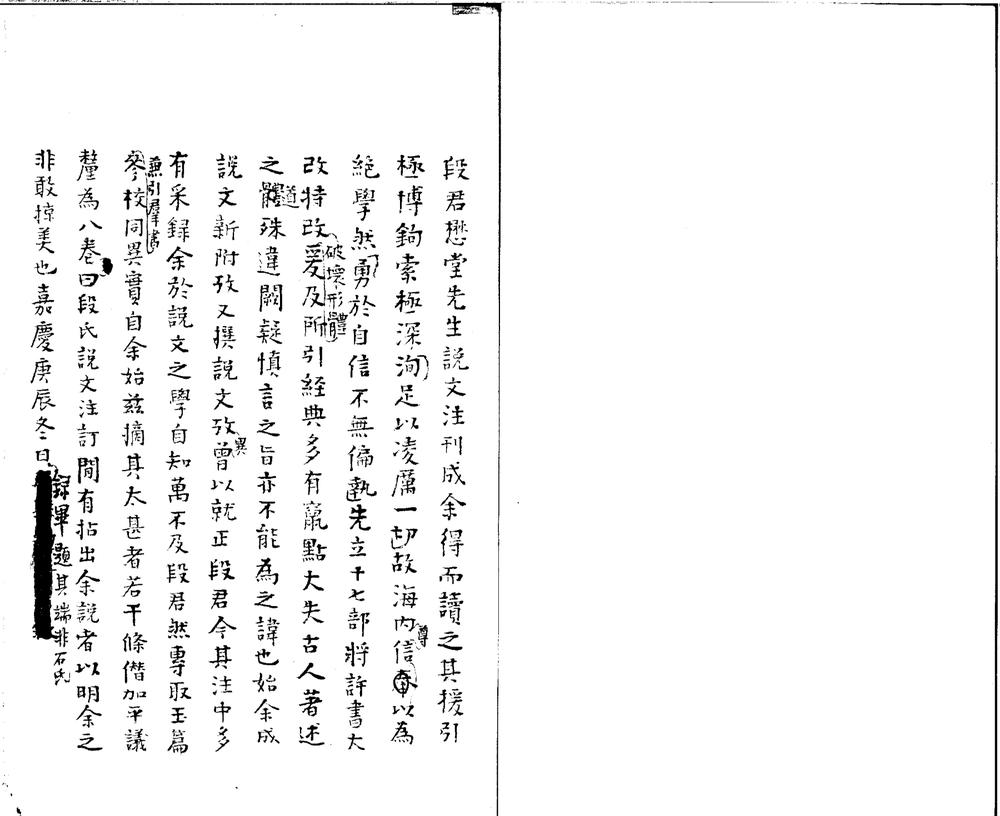 段君懋堂先生説文注刊成余得而讀之其援引
極博鉤索極深洵足以凌厲一切故海內信尊以為
絕學然勇於自信不無偏執先立十七部將許書大
改特改破壞形體爰及所引經典多有竄點大失古人著述
之體道殊違闕疑慎言之旨亦不能為之諱也始余成
說文新附攷又撰說文攷異曾以就正段君今其注中多
有采録余於説文之學自知萬不及段君然專取玉篇
兼引羣書
參校同異實自余始茲摘其太甚者若干條僭加平議
釐為八卷曰段氏説文注訂閒有拈出余說者以明余之
非敢掠美也嘉慶庚辰冬日
録畢題其端非石氏